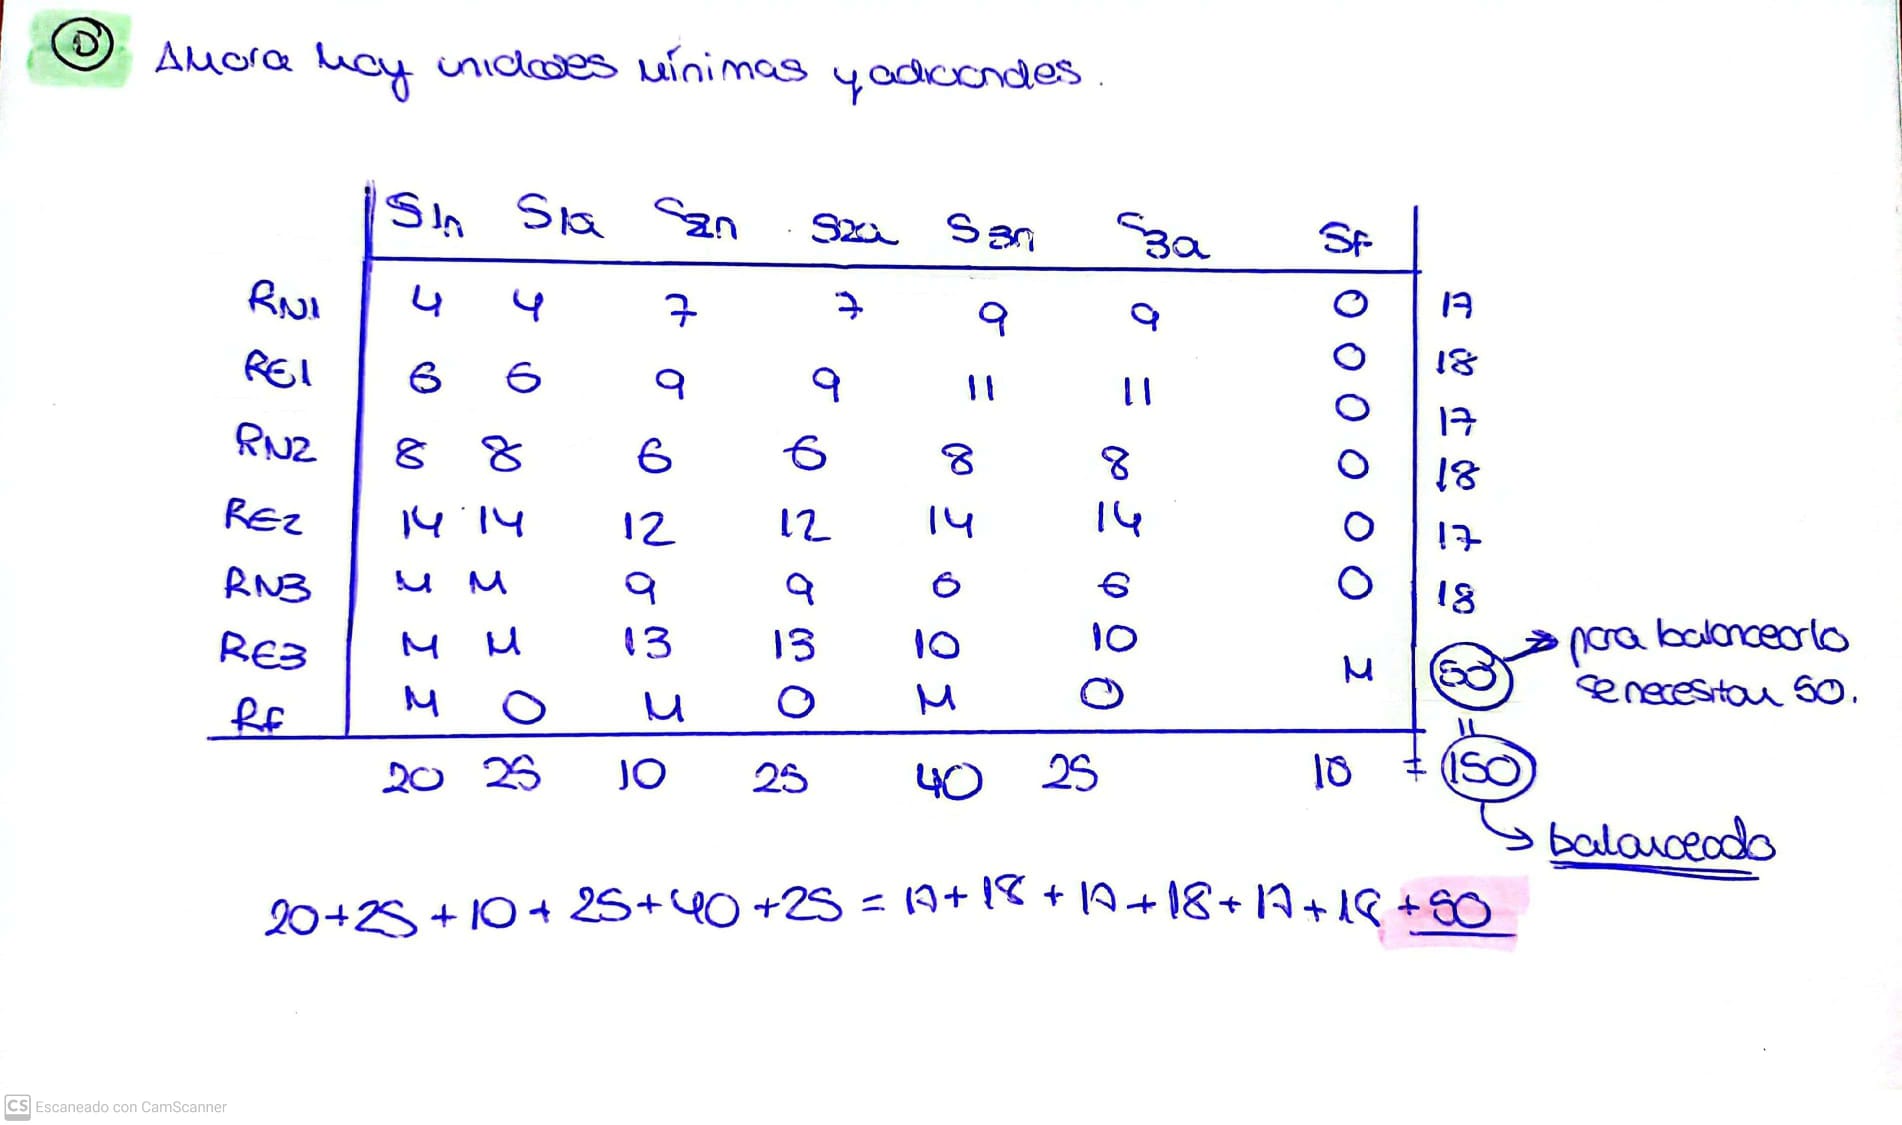 D' Ahora hay unidades mínimas y adicionales.
S1n S1a S2n S2a S3n S3a Sf
RN1 4 4 7 7 9 9 0 17
RE1 6 6 9 9 11 11 0 18
RN2 8 8 6 6 8 8 0 17
RE2 14 14 12 12 14 14 0 18
RN3 M M 9 9 6 6 0 17
RE3 M M 13 13 10 10 0 18
Rf M 0 M 0 M 0 M 50 → para balancearlo
se necesitan 50.
20 25 10 25 40 25 10 ≠ 150
balanceado
20+25+10+25+40+25 = 17+18+17+18+17+18+50
CS Escaneado con CamScanner